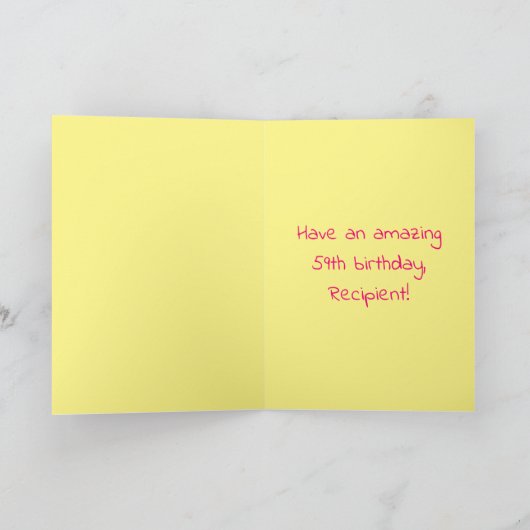 Have an amazing
59th birthday,
Recipient!